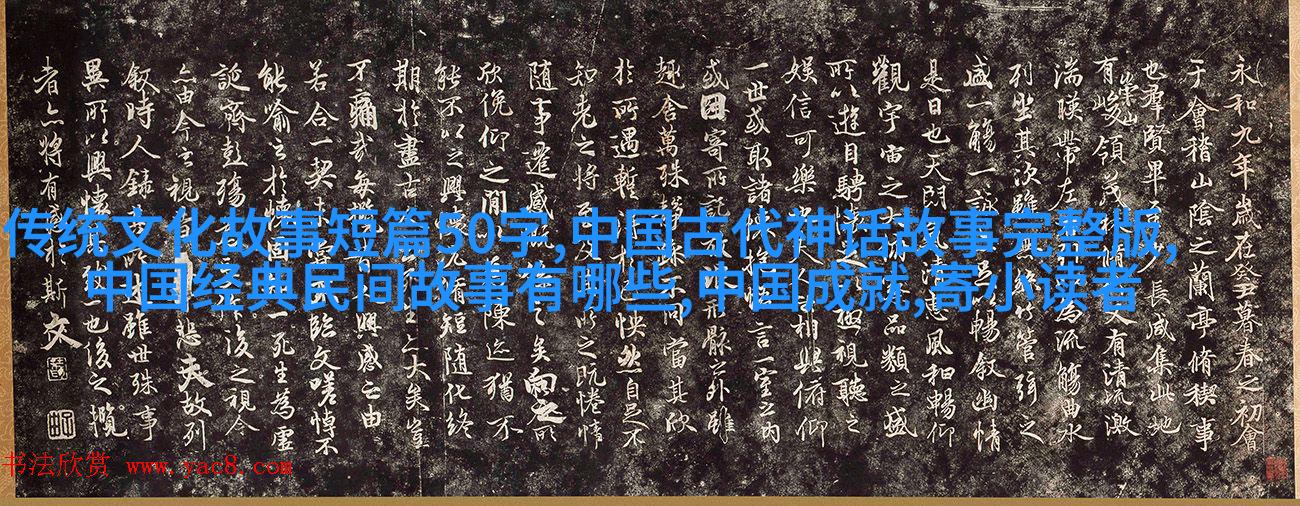 永和九年歲在癸丑暮春之初會
于會稽山陰之蘭亭脩稧事
也羣賢畢至少長咸集此地
有崇山峻領茂林脩又有清流激
湍暎帶左右為流觴曲水
列坐其次雖無絲竹管弦之
盛一觴一詠以暢敘幽情
是日也天朗惠風和暢仰
觀宇宙之大俯品類之盛
所以遊目騁懷足極視聽之
娛信可樂也夫人相與俯仰
一世或取諸懷抱言一室之內
或因寄所託形骸之外雖
趣舍萬殊靜不同當其欣
於所遇暫得怏然自足不
知老之將至及所之既惓情
隨事遷感慨之矣向之所
欣俛仰之間陳迹猶不
能不以之興懷況短隨化終
期於盡古人生亦大矣豈
不痛哉每攬興感之由
若合一契未嘗臨文嗟悼不
能喻之於懷固一死生為虛
誕齊彭殤作後之視今
亦由今之視昔悲夫故列
敘時人錄所述雖世殊事
異所以興懷一也後之攬
者亦將有感於斯文
传统文化故事短篇50字,中国古代神话故事完整版,
中国经典民间故事有哪些,中国成就,寄小读者
书法欣赏 www.yac8.com